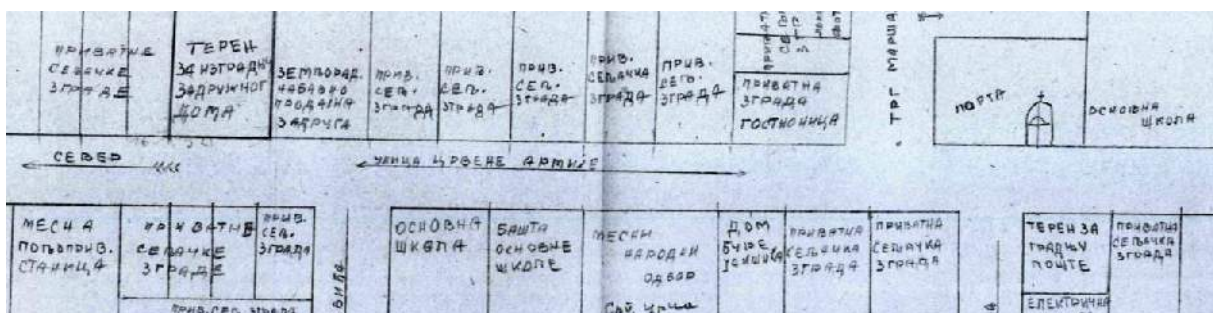 ПРИВАТНЕ
СЕЉАЧКЕ
ЗГРАДЕ
ТЕРЕН
ЗА ИЗГРАДЊУ
ЗАДРУЖНОГ
ДОМА
ЗЕМЉОРАД.
НАБАВНО
ПРОДАЈНА
ЗАДРУГА
ПРИВ.
СЕЉ.
ЗГРАДА
ПРИВ.
СЕЉ.
ЗГРАДА
ПРИВ.
СЕЉ.
ЗГРАДА
ПРИВ.
СЕЉАЧКА
ЗГРАДА
ПРИВ.
СЕЉ.
ЗГРАДА
ПРИВАТНА
ЗГРАДА
ГОСТИОНИЦА
ТРГ МАРША
ПОРТА
ОСНОВНА
ШКОЛА
СЕВЕР
УЛИЦА ЦРВЕНЕ АРМИЈЕ
МЕСНА
ПОЉОПРИВ.
СТАНИЦА
ПРИВАТНЕ
СЕЉАЧКЕ
ЗГРАДЕ
ПРИВ.
СЕЉ.
ЗГРАДА
ПРИВ. СЕЉ. ЗГРАДА
ОСНОВНА
ШКОЛА
БАШТА
ОСНОВНЕ
ШКОЛЕ
МЕСНИ
НАРОДНИ
ОДБОР
ДОМ
ПРИВАТНА
СЕЉАЧКА
ЗГРАДА
ПРИВАТНА
СЕЉАЧКА
ЗГРАДА
ТЕРЕН ЗА
ГРАДЊУ
ПОШТЕ
ПРИВАТНА
СЕЉАЧКА
ЗГРАДА
ЕЛЕКТРИЧНА